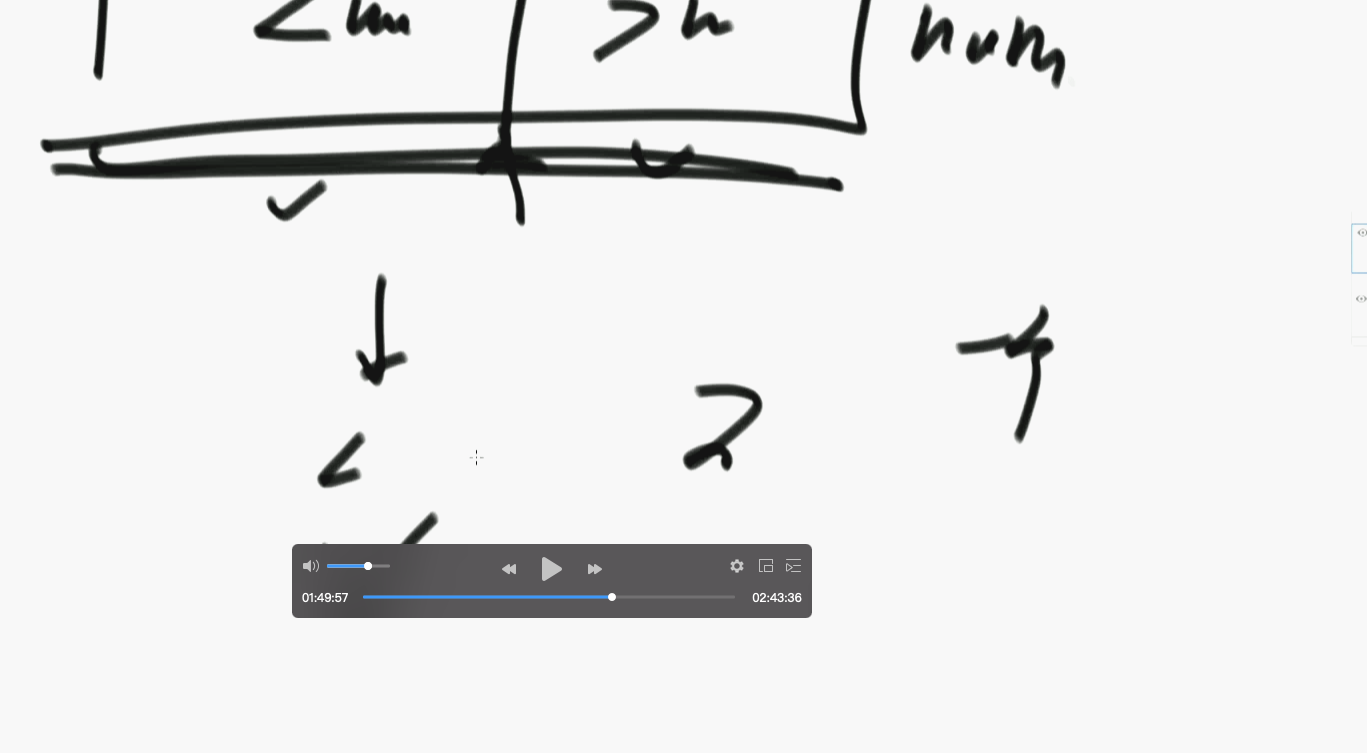 < num > n num
2
<
01:49:57 02:43:36